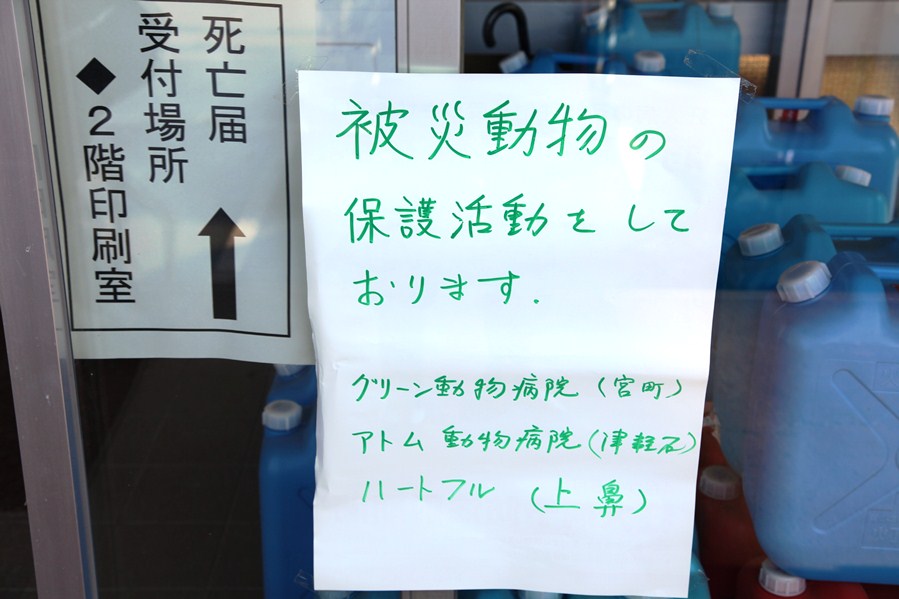 死亡届
受付場所
◆2階印刷室
被災動物の
保護活動をして
おります.
グリーン動物病院(宮町)
アトム動物病院(津軽石)
ハートフル(上鼻)